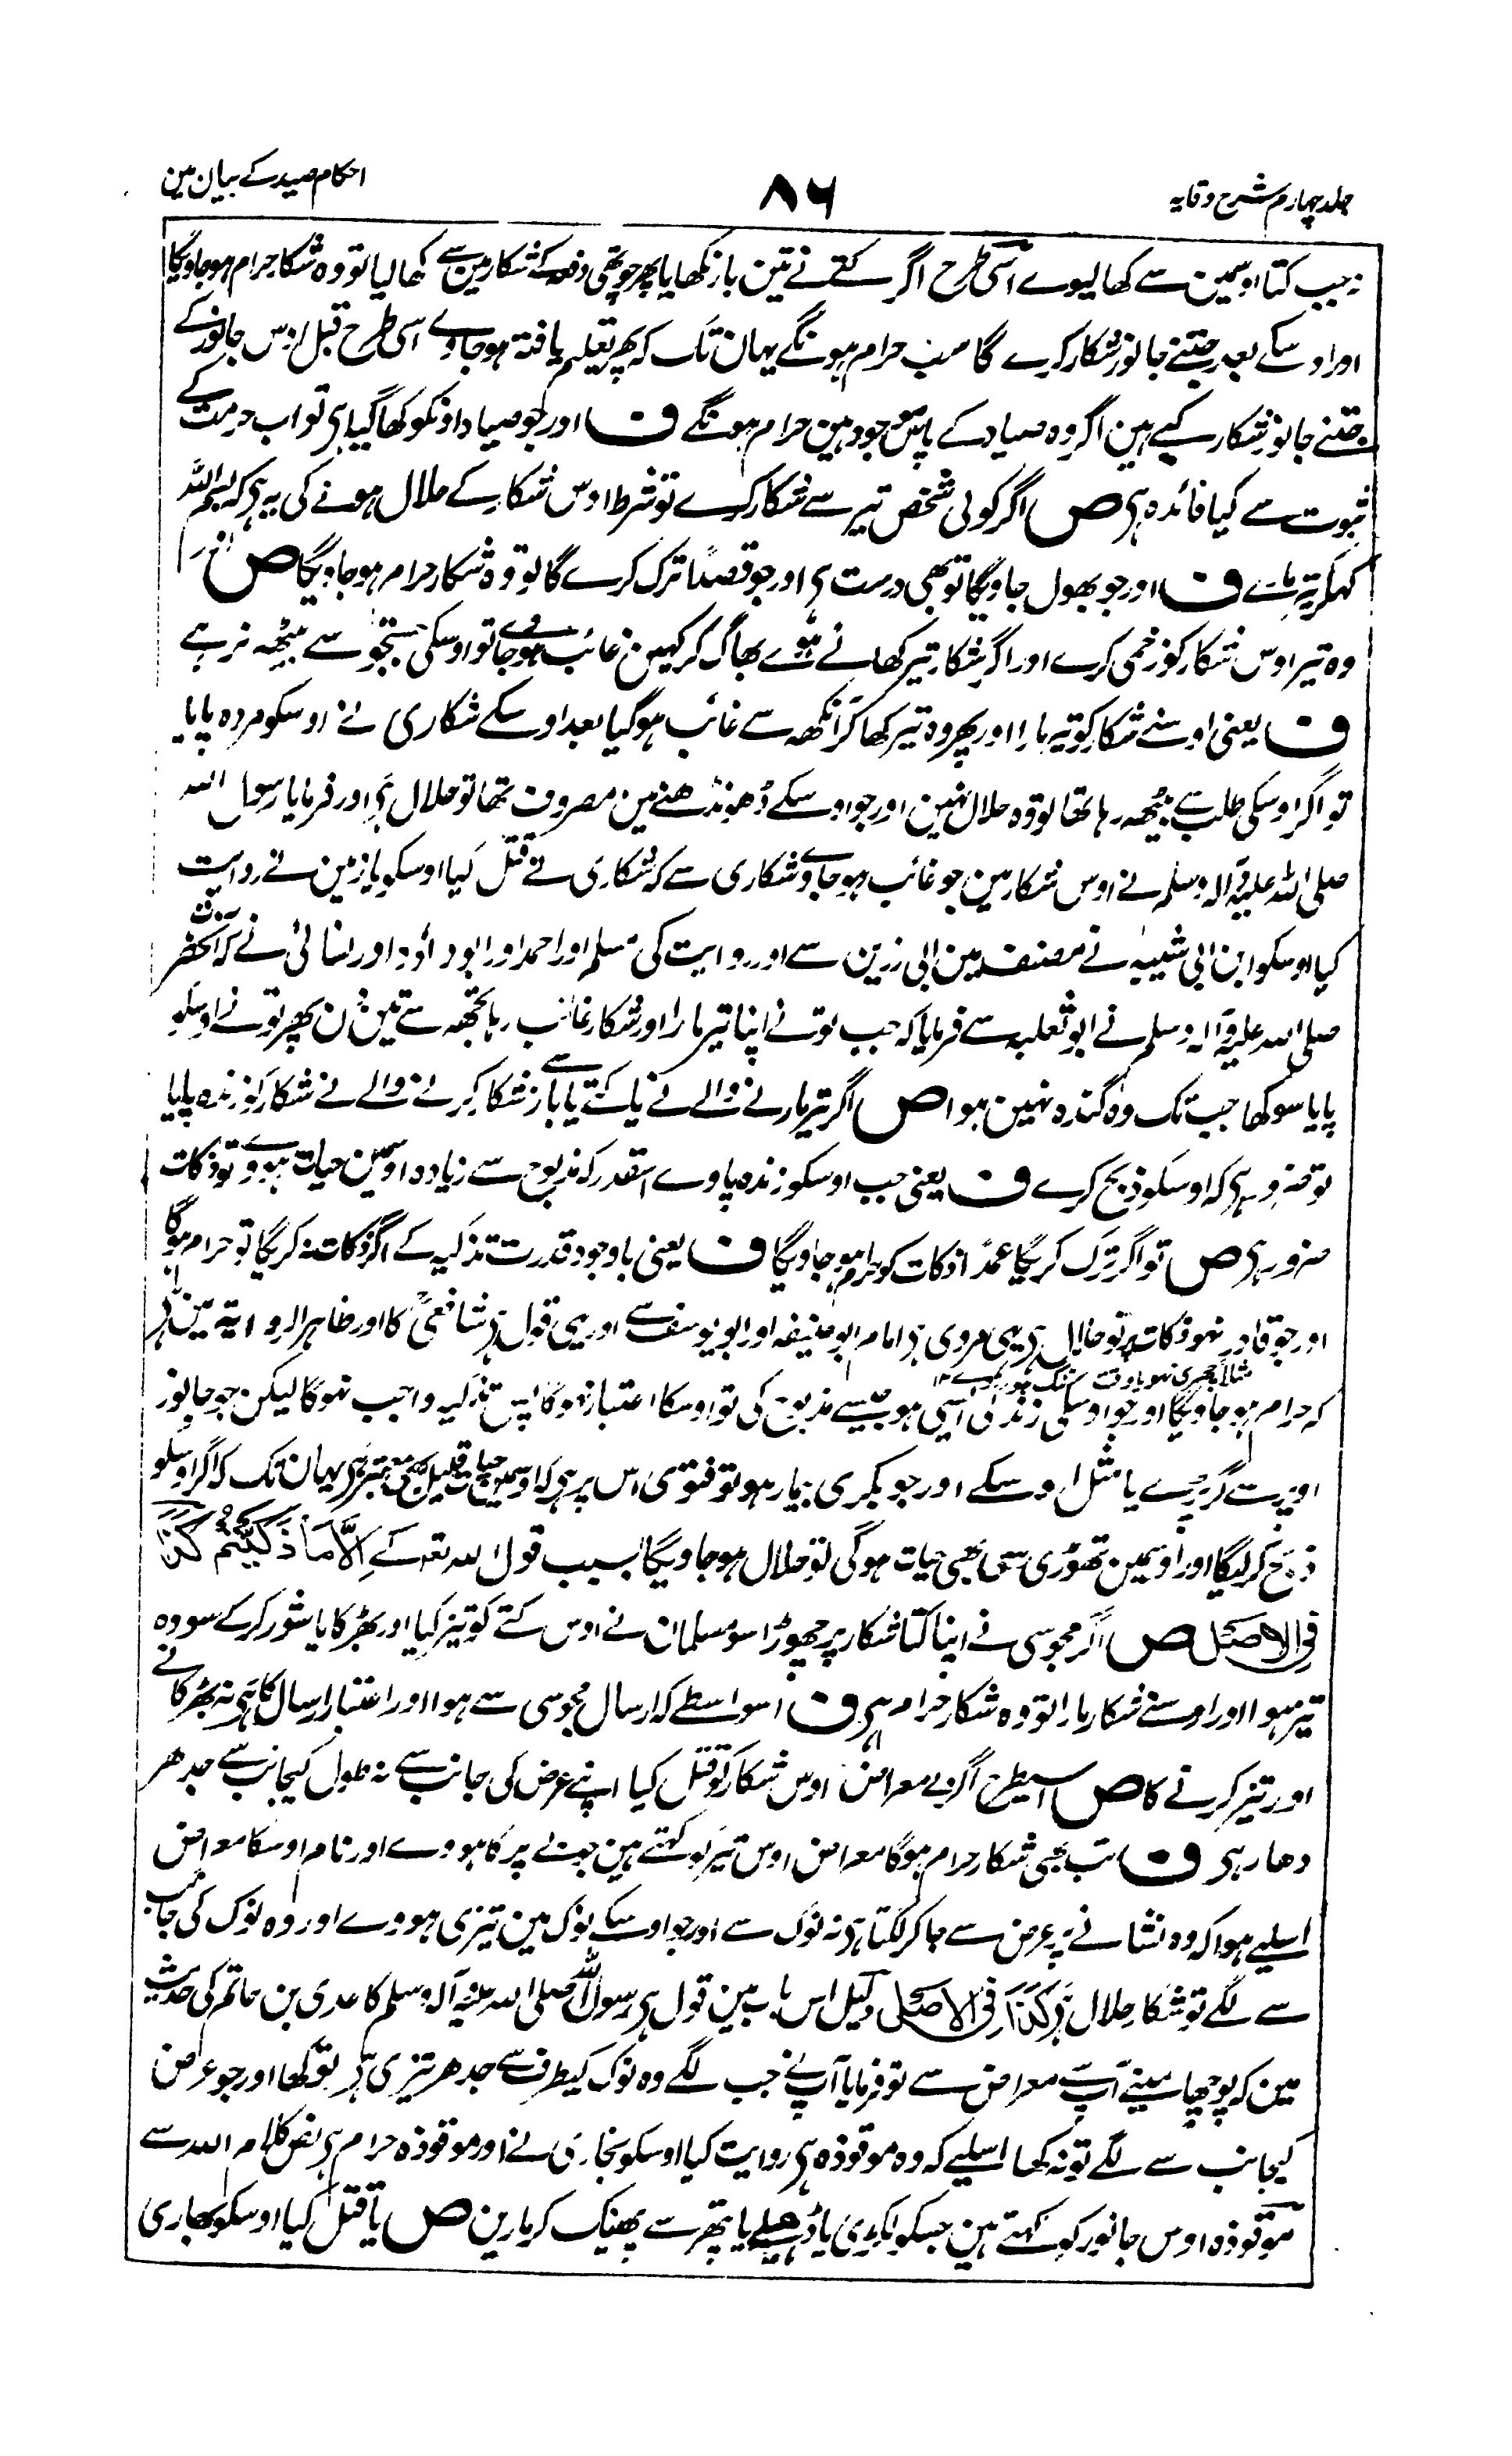 جلد چہارم شرح وقایہ
۸۶
احکام صید کے بیان مین
نہ جب کتا اوسمین سے کھا لیوے اسی طرح اگر کتے نے تین بار نکھایا پھر چوتھی دفعہ کے شکار مین سے کھا لیا تو وہ شکار حرام ہو جاویگا
اور اوسکے بعد جتنے جانور شکار کرے گا سب حرام ہونگے یہان تک کہ پھر تعلیم یافتہ ہو جاوے اسی طرح قبل اوس جانور کے
جتنے جانور شکار کیے ہین اگر وہ صیاد کے پاس موجود ہین حرام ہونگے ف اور جو صیاد اونکو کھا گیا ہی تو اب حرمت کے
ثبوت سے کیا فائدہ ہی ص اگر کوئی شخص تیر سے شکار کرے تو شرط اوس شکار کے حلال ہونے کی یہ ہی کہ بسم اللہ
کہکر تیر مارے ف اور جو بھول جاویگا تو بھی درست ہی اور جو قصداً ترک کرے گا تو وہ شکار حرام ہو جاویگا ص اور
وہ تیر اوس شکار کو زخمی کرے اور اگر شکار تیر کھاتے ہوے بھاگ کر کہین غائب ہو جاوے تو اوسکی جستجو سے بیٹھہ نرہے
ف یعنی اوسنے شکار کو تیر مارا اور پھر وہ تیر کھا کر آنکھہ سے غائب ہو گیا بعد اوسکے شکاری نے اوسکو مردہ پایا
تو اگر اوسکی طلب سے بیٹھہ رہا تھا تو وہ حلال نہین اور جو اوسکے ڈھونڈھنے مین مصروف تھا تو حلال ہی اور فرمایا رسول اللہ
صلی اللہ علیہ وآلہ وسلم نے اوس شکار مین جو غائب ہو جاوے شکاری سے کہ شکاری نے قتل کیا اوسکو یا زمین نے روایت
کیا اوسکو ابن ابی شیبہ نے مصنف مین ابی رزین سے اور روایت کی مسلم اور احمد اور ابو داؤد اور نسائی نے کہ آنحضرت
صلی اللہ علیہ وآلہ وسلم نے ابو ثعلبہ سے فرمایا کہ جب تو نے اپنا تیر مارا اور شکار غائب رہا تجھہ سے تین دن پھر تو نے اوسکو
پایا سو کھا جب تک وہ گندہ نہین ہوا ص اگر تیر مارنے والے نے یا کتے یا باز سے شکار کرنے والے نے شکار کو زندہ پایا
تو ضرور ہی کہ اوسکو ذبح کرے ف یعنی جب اوسکو زندہ پاوے اسقدر کہ مذبوح سے زیادہ اوسمین حیات ہووے تو ذکات
ضرور ہی ص تو اگر ترک کریگا عمداً ذکات کو حرام ہو جاویگا ف یعنی باوجود قدرت تذکیہ کے اگر ذکات نہ کریگا تو حرام ہوگا
اور جو قادر نہو ذکات پر تو حلال ہی یہی مروی ہی امام ابو حنیفہ اور ابو یوسف سے اور یہی قول ہی شافعیؒ کا اور ظاہر الروایۃ مین ہی
کہ حرام ہو جاویگا اور جو اوسکی زندگی ایسی ہو جیسے مذبوح کی تو اوسکا اعتبار نہوگا پس تذکیہ واجب نہوگا لیکن جو جانور
اوپر سے گر پڑے یا مثل اوسکے اور جو بکری بیمار ہو تو فتوی اس پر ہی کہ اوسمین حیات قلیل بھی معتبر ہی یہان تک کہ اگر اوسکو
ذبح کر لیگا اور اوسمین تھوڑی سی بھی حیات ہوگی تو حلال ہو جاویگا بسبب قول اللہ تعہ کے اِلَّا مَا ذَكَّيْتُمْ کذا
فی الاصل ص اگر مجوسی نے اپنا کتا شکار پر چھوڑا سو مسلمان نے اوس کتے کو تیز کیا اور بھڑکایا شور کرکے سو وہ
تیز ہوا اور اوسنے شکار مارا تو وہ شکار حرام ہی ف اسواسطے کہ ارسال مجوسی سے ہوا اور اعتبار ارسال کا ہی نہ بھڑکانے
اور تیز کرنے کا ص اسیطرح اگر بے معراض اوس شکار کو قتل کیا اپنے عرض کی جانب سے نہ طول کیجانب سے جدھر
دھار ہی ف تب بھی شکار حرام ہوگا معراض اوس تیر کو کہتے ہین جو بے پر کا ہووے اور نام اوسکا معراض
اسلیے ہوا کہ وہ نشانے پر عرض سے جا کر لگتا ہی نہ نوک سے اور جو اوسکے نوک مین تیزی ہووے اور وہ نوک کی جانب
سے لگے تو شکار حلال ہی کذا فی الاصل دلیل اس باب مین قول ہی رسول اللہ صلی اللہ علیہ وآلہ وسلم کا عدی بن حاتم کی حدیث
مین کہ پوچھا مینے آپ سے معراض سے تو فرمایا آپ نے جب لگے وہ نوک کیطرف سے جدھر تیزی ہی تو کھا اور جو عرض
کیجانب سے لگے تو نہ کھا اسلیے کہ وہ موقوذہ ہی روایت کیا اوسکو بخاری نے اور موقوذہ حرام ہی نص کلام اللہ سے
موقوذہ اوس جانور کو کہتے ہین جسکو لکڑی یا ڈھیلے یا پتھر سے پھینک کر مارین ص یا قتل کیا اوسکو بھاری